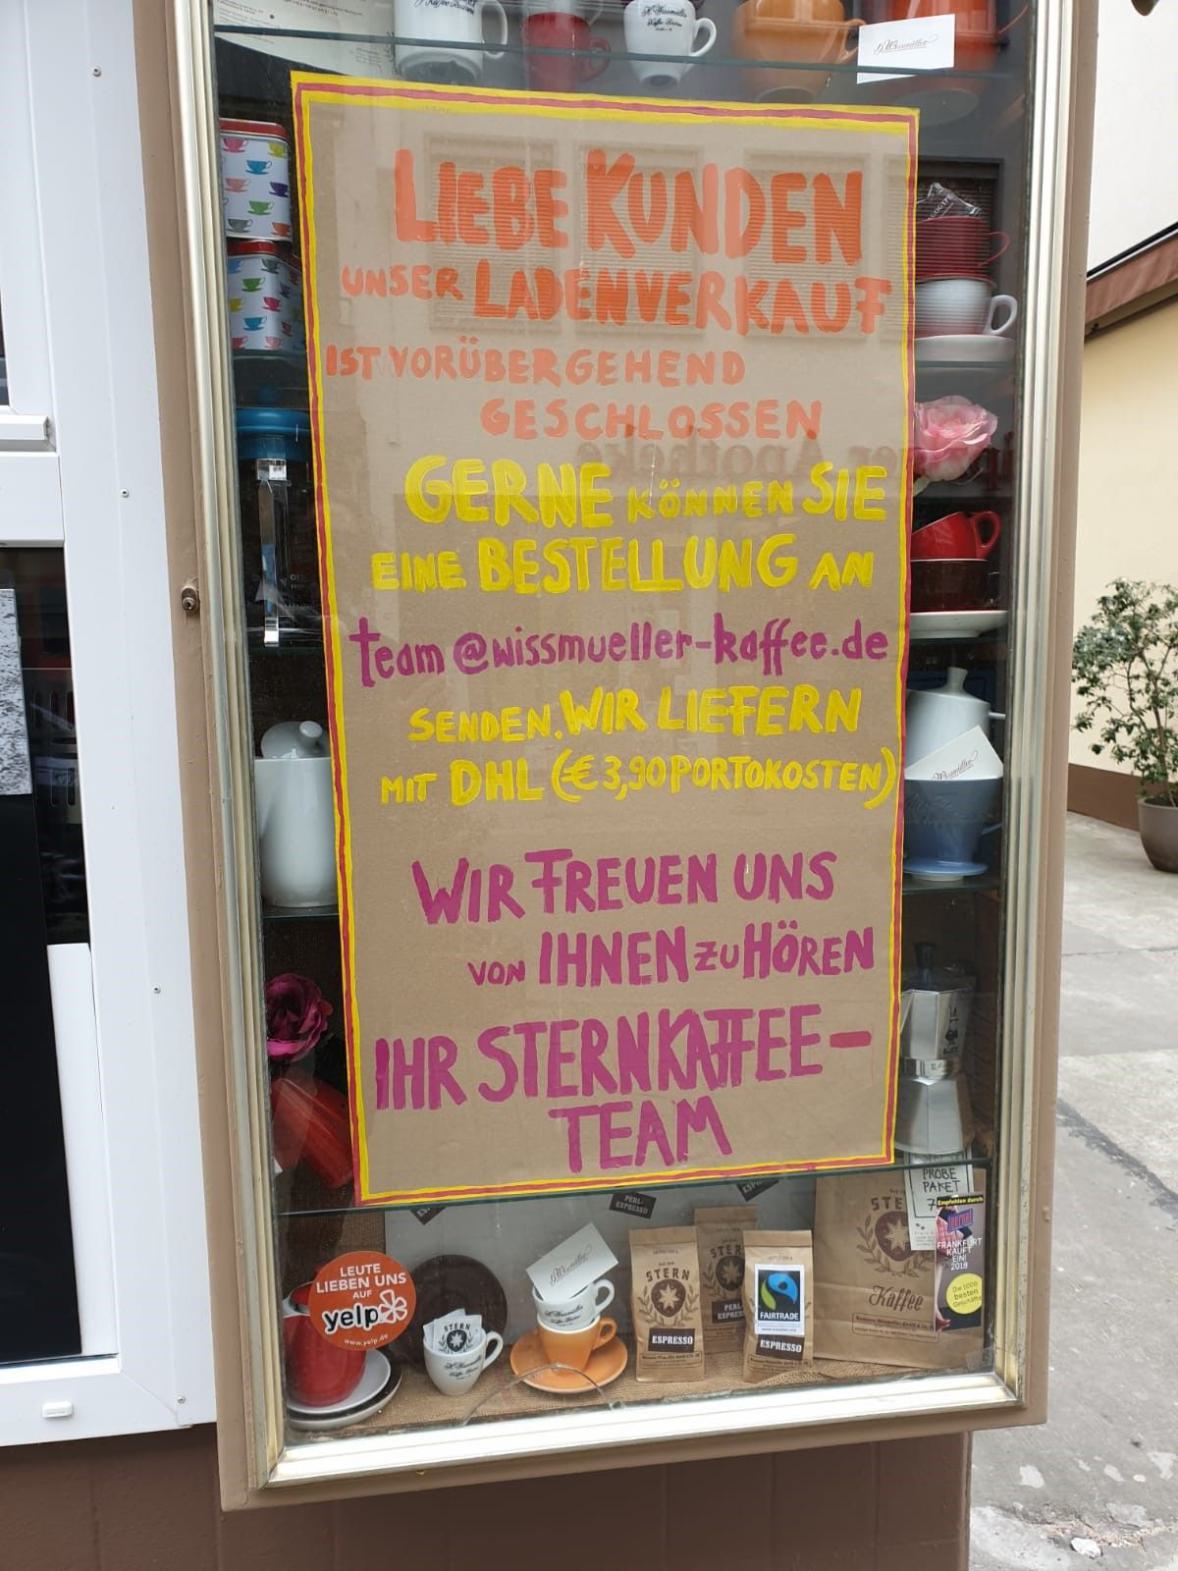 LIEBE KUNDEN
UNSER LADENVERKAUF
IST VORÜBERGEHEND
GESCHLOSSEN
GERNE KÖNNEN SIE
EINE BESTELLUNG AN
team@wissmueller-kaffee.de
SENDEN. WIR LIEFERN
MIT DHL (€ 3,90 PORTOKOSTEN)
WIR FREUEN UNS
VON IHNEN ZU HÖREN
IHR STERNKAFFEE-
TEAM
PROBE
PAKET
PERL-
ESPRESSO
STERN
ESPRESSO
PERL-
ESPRESSO
FAIRTRADE
ESPRESSO
STERN
Kaffee
Empfohlen durch:
FRANKFURT
KAUFT
EIN!
2018
Die 1000
besten
Geschäfte
LEUTE
LIEBEN UNS
AUF
yelp
www.yelp.de
STERN